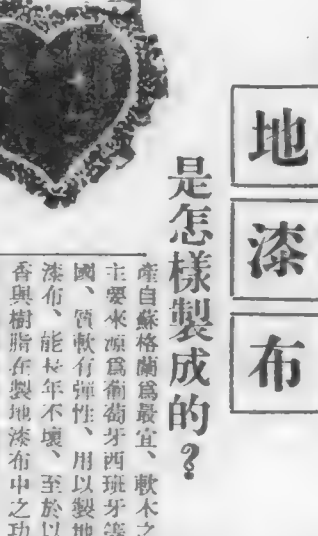 地漆布
是怎樣製成的？
產自蘇格蘭爲最宜、軟木之
主要來源爲葡萄牙西班牙等
國、質軟有彈性、用以製地
漆布、能長年不壞、至於以
香與樹脂在製地漆布中之功